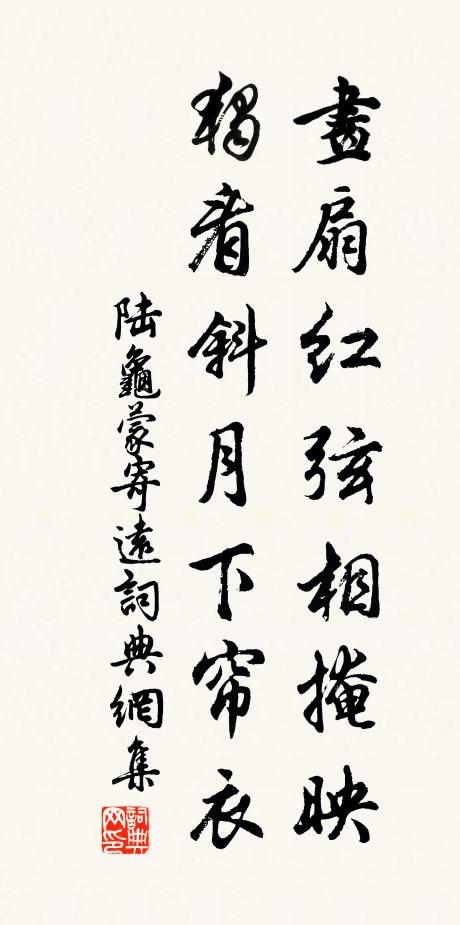 畫扇红弦相掩映
獨看斜月下帘衣
陆龜蒙寄遠詞典網集
詞典网印